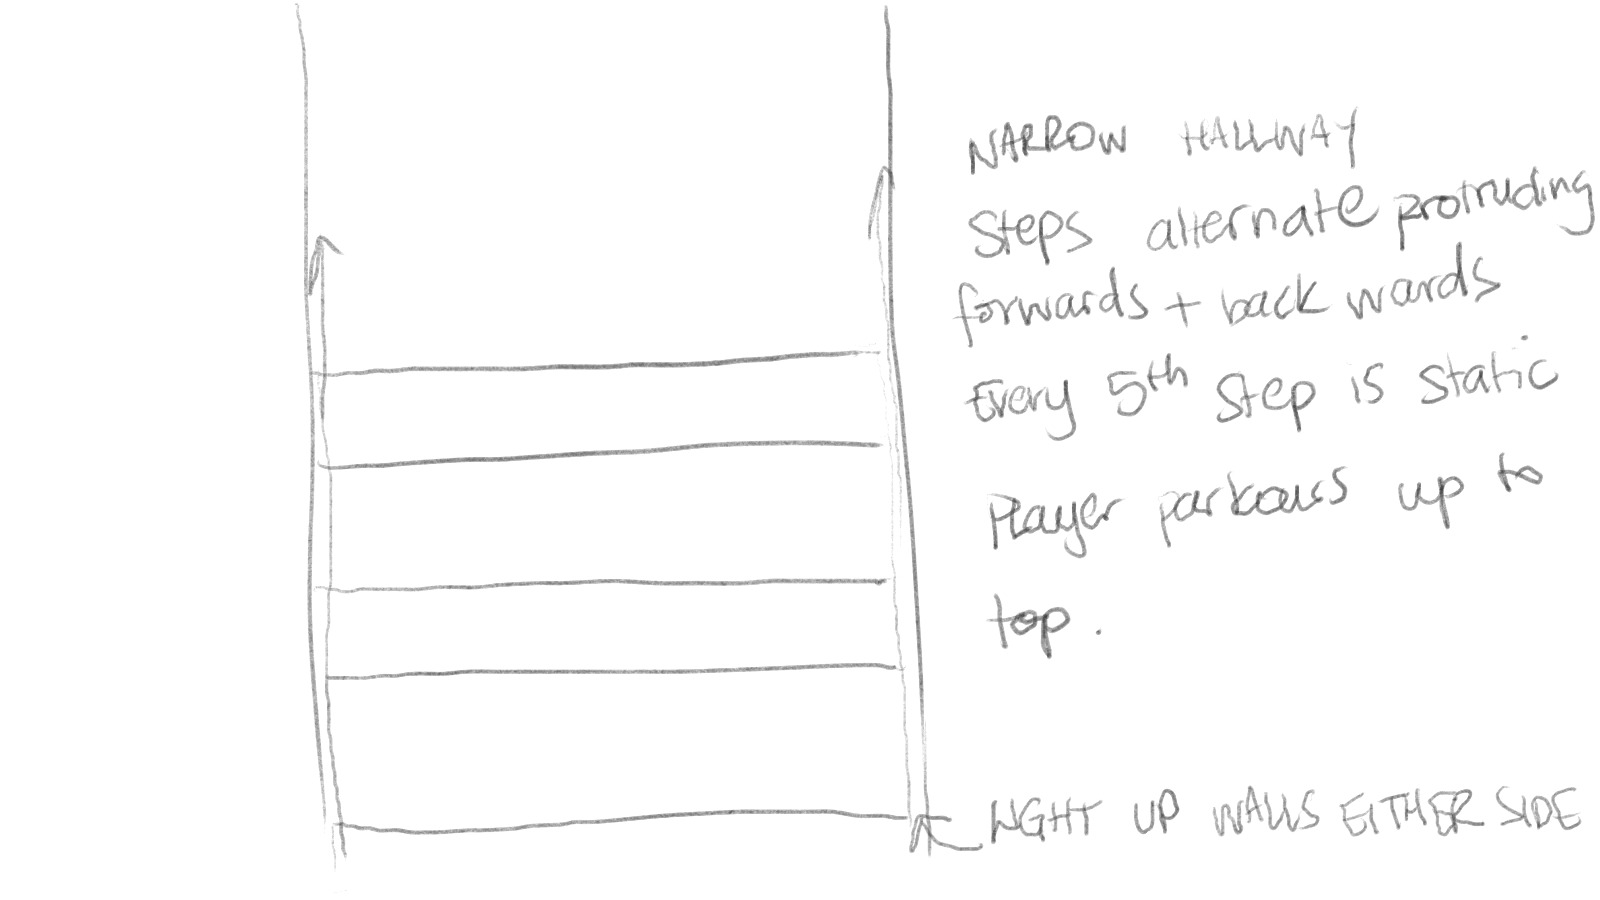 NARROW HALLWAY
Steps alternate protruding
forwards + back wards
Every 5th Step is static
Player parkours up to
top.
LIGHT UP WALLS EITHER SIDE